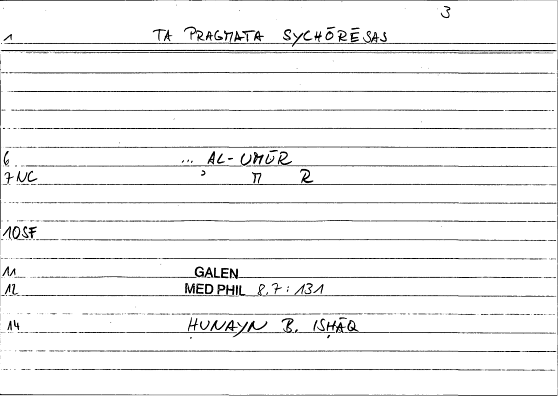 3
1 TA PRAGMATA SYCHŌRĒSAS
6 ... AL-UMŪR
7 NC ʾ M R
10 SF
11 GALEN
12 MED PHIL 8,7: 131
14 ḤUNAYN B. ISḤĀQ